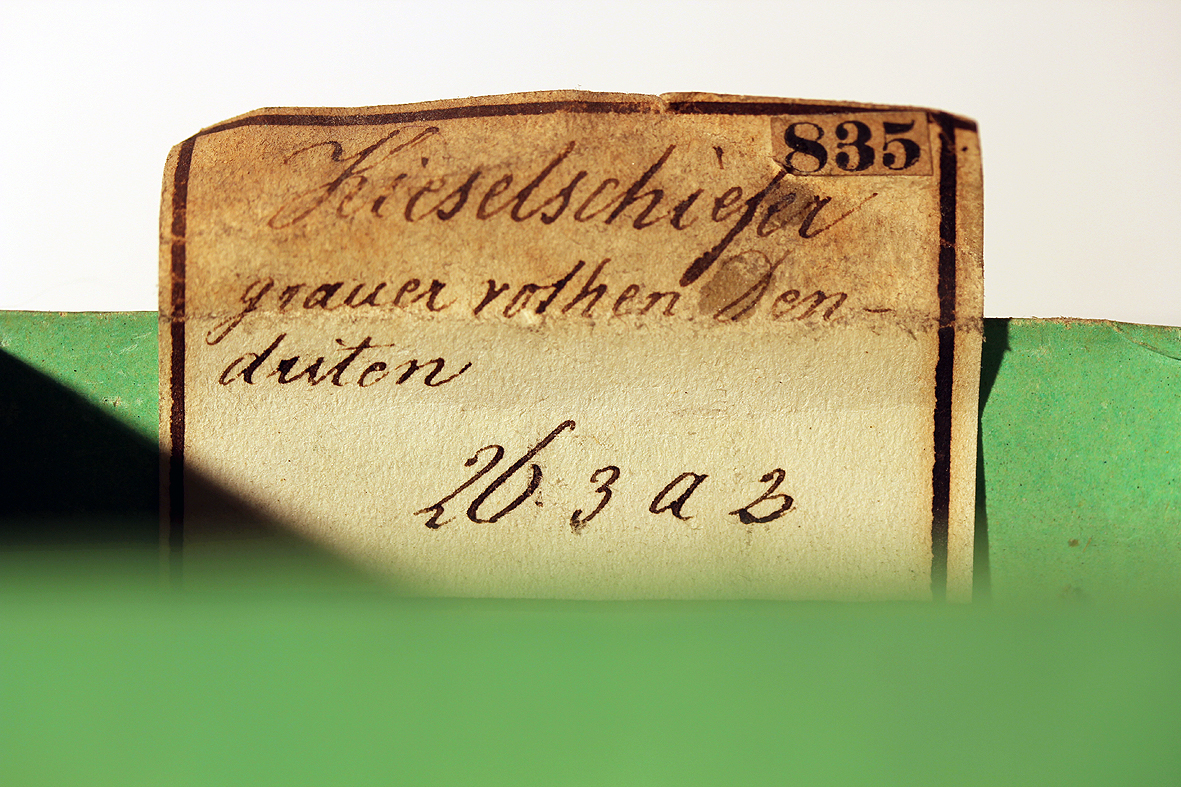 835
Kieselschiefer
grauer rothen Den-
driten
26 3 a 2